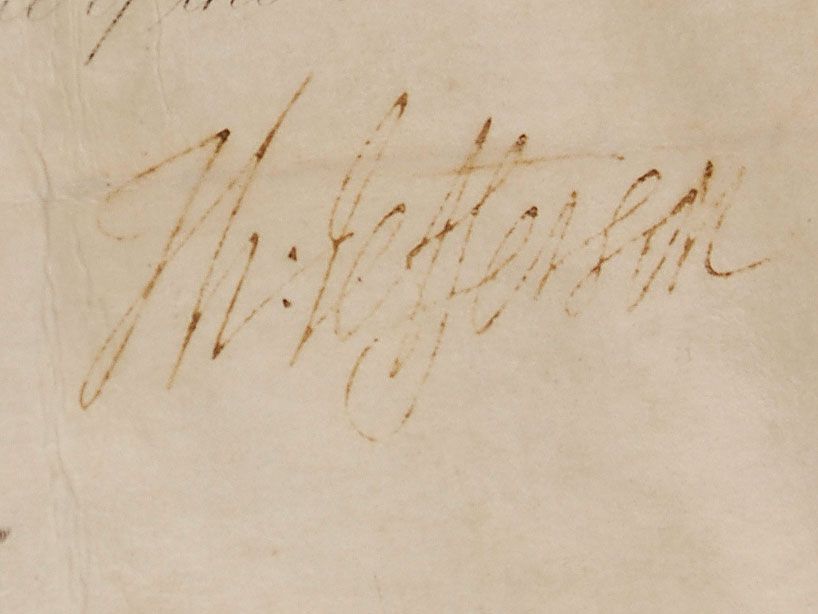 Th: Jefferson